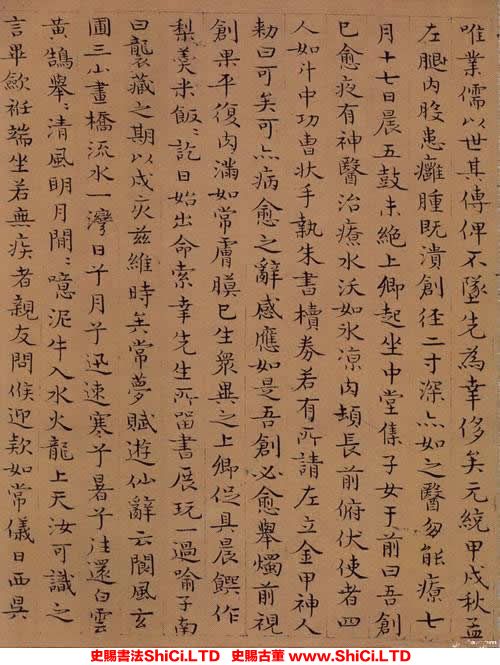 唯業儒以世其傳俾不墜先為幸侈矣元統甲戌秋孟
左腿內股患癰腫既潰創徑二寸深亦如之醫匆能療七
月十七日晨五鼓未絕上卿起坐中堂集子女于前曰吾創
已愈夜有神醫治療水沃如氷涼肉頓長前俯伏使者四
人如斗中功曹狀手執朱書櫝券若有所請左立金甲神人
勑曰可矣可亦病愈之辭感應如是吾創必愈舉燭前視
創果平復肉滿如常膚膜已生眾異之上卿促具晨饌作
梨羹米飯〻訖日始出命索幸先生所留書展玩一過喻子南
曰襲藏之期以戌亥茲維時矣常夢賦遊仙辭云閬風玄
圃三小畫橋流水一灣日予月予迅速寒予暑予往還白雲
黃鵠舉〻清風明月閒〻噫泥牛入水火龍上天汝可識之
言畢歛袵端坐若無疾者親友問候迎欵如常儀日西昃
史賜書法ShiCi.LTD 史賜古董 www.ShiCi.LTD